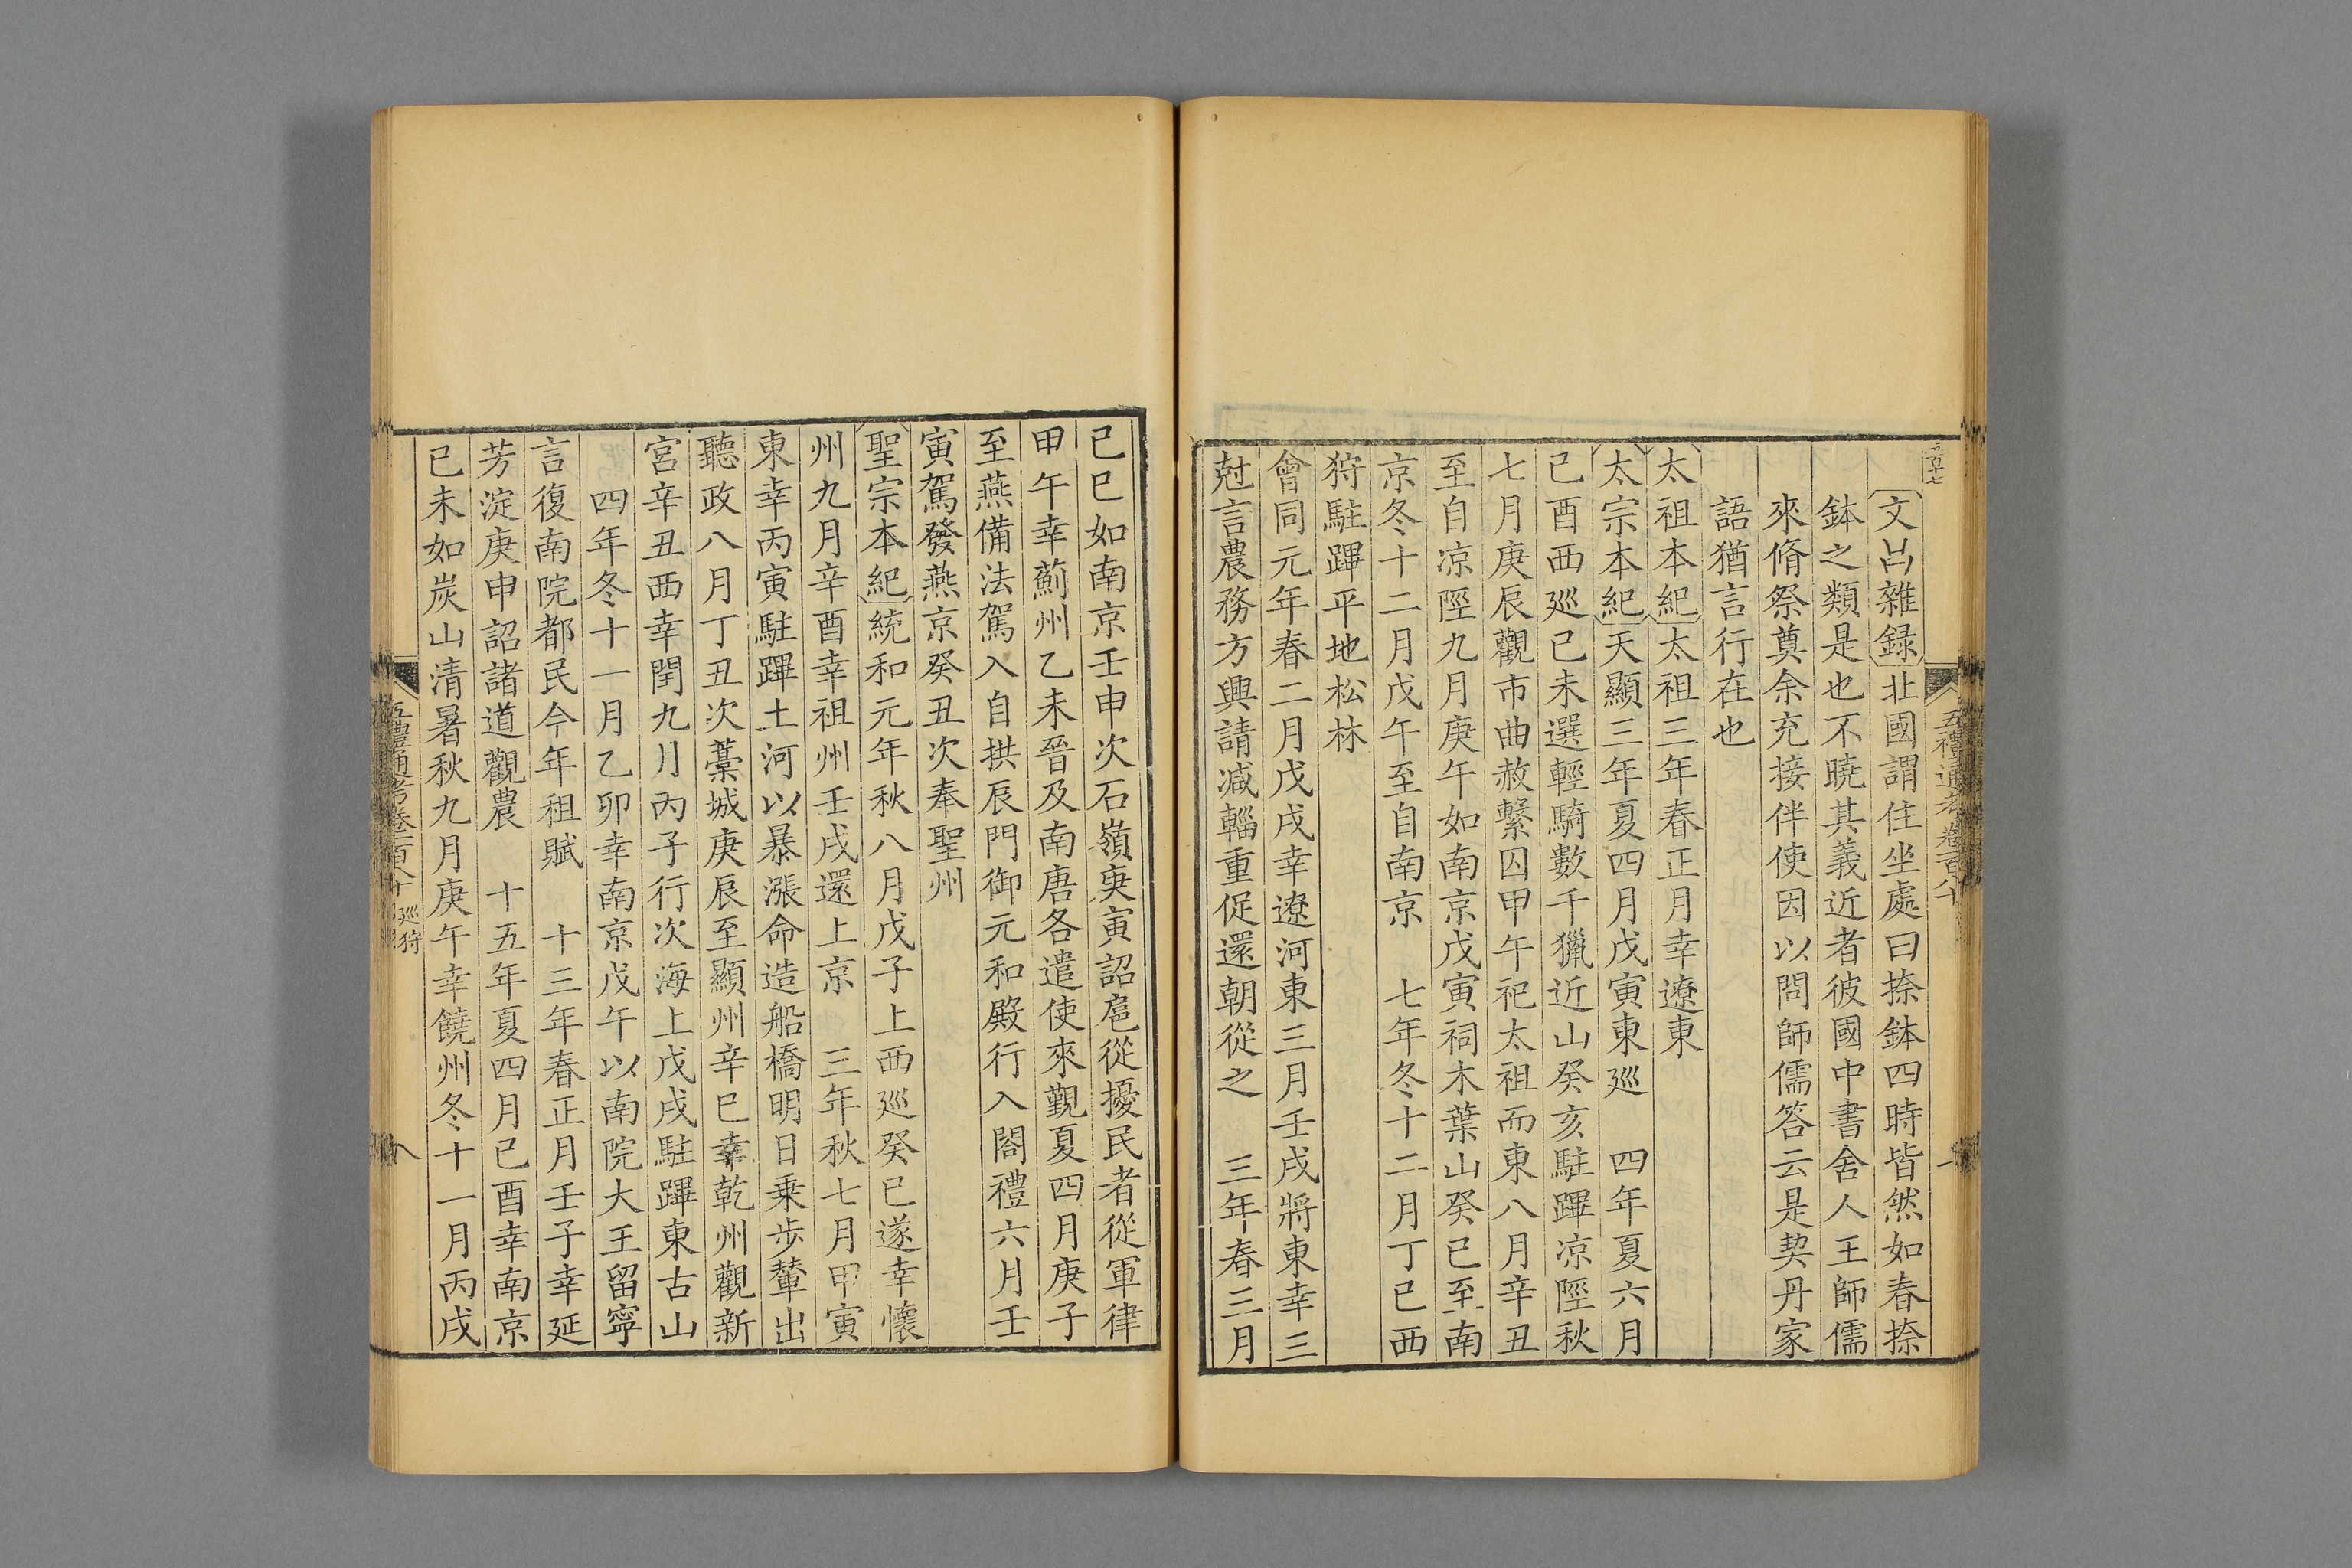 五禮通考卷一百八十
文昌雜録北國謂住坐處曰捺鉢四時皆然如春捺
鉢之類是也不曉其義近者彼國中書舍人王師儒
來脩祭奠余充接伴使因以問師儒答云是契丹家
語猶言行在也
太祖本紀太祖三年春正月幸遼東
太宗本紀天顯三年夏四月戊寅東廵　四年夏六月
己酉西廵己未選輕騎數千獵近山癸亥駐蹕凉陘秋
七月庚辰觀市曲赦繫囚甲午祀太祖而東八月辛丑
至自凉陘九月庚午如南京戊寅祠木葉山癸巳至南
京冬十二月戊午至自南京　七年冬十二月丁巳西
狩駐蹕平地松林
會同元年春二月戊戌幸遼河東三月壬戌將東幸三
尅言農務方興請减輜重促還朝從之　三年春三月
己巳如南京壬申次石嶺庚寅詔扈從擾民者從軍律
甲午幸薊州乙未晉及南唐各遣使來覲夏四月庚子
至燕備法駕入自拱辰門御元和殿行入閤禮六月壬
寅駕發燕京癸丑次奉聖州
聖宗本紀統和元年秋八月戊子上西廵癸巳遂幸懷
州九月辛酉幸祖州壬戌還上京　三年秋七月甲寅
東幸丙寅駐蹕土河以暴漲命造船橋明日乗步輦出
聽政八月丁丑次藁城庚辰至顯州辛巳幸乾州觀新
宮辛丑西幸閏九月丙子行次海上戊戌駐蹕東古山
四年冬十一月乙卯幸南京戊午以南院大王留寧
言復南院都民今年租賦　十三年春正月壬子幸延
芳淀庚申詔諸道觀農　十五年夏四月己酉幸南京
己未如炭山清暑秋九月庚午幸饒州冬十一月丙戌
五禮通考卷一百八十　廵狩　八